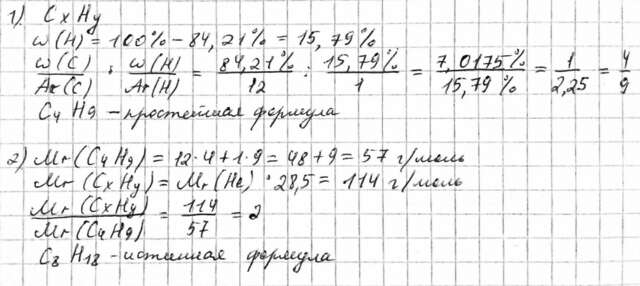 1) CxHy
ω(H) = 100% - 84,21% = 15,79%
ω(C)/Ar(C) : ω(H)/Ar(H) = 84,21%/12 : 15,79%/1 = 7,0175%/15,79% = 1/2,25 = 4/9
C4H9 - простейшая формула
2) Mr(C4H9) = 12·4+1·9 = 48+9 = 57 г/моль
Mr(CxHy) = Mr(He)·28,5 = 114 г/моль
Mr(CxHy)/Mr(C4H9) = 114/57 = 2
C8H18 - истинная формула